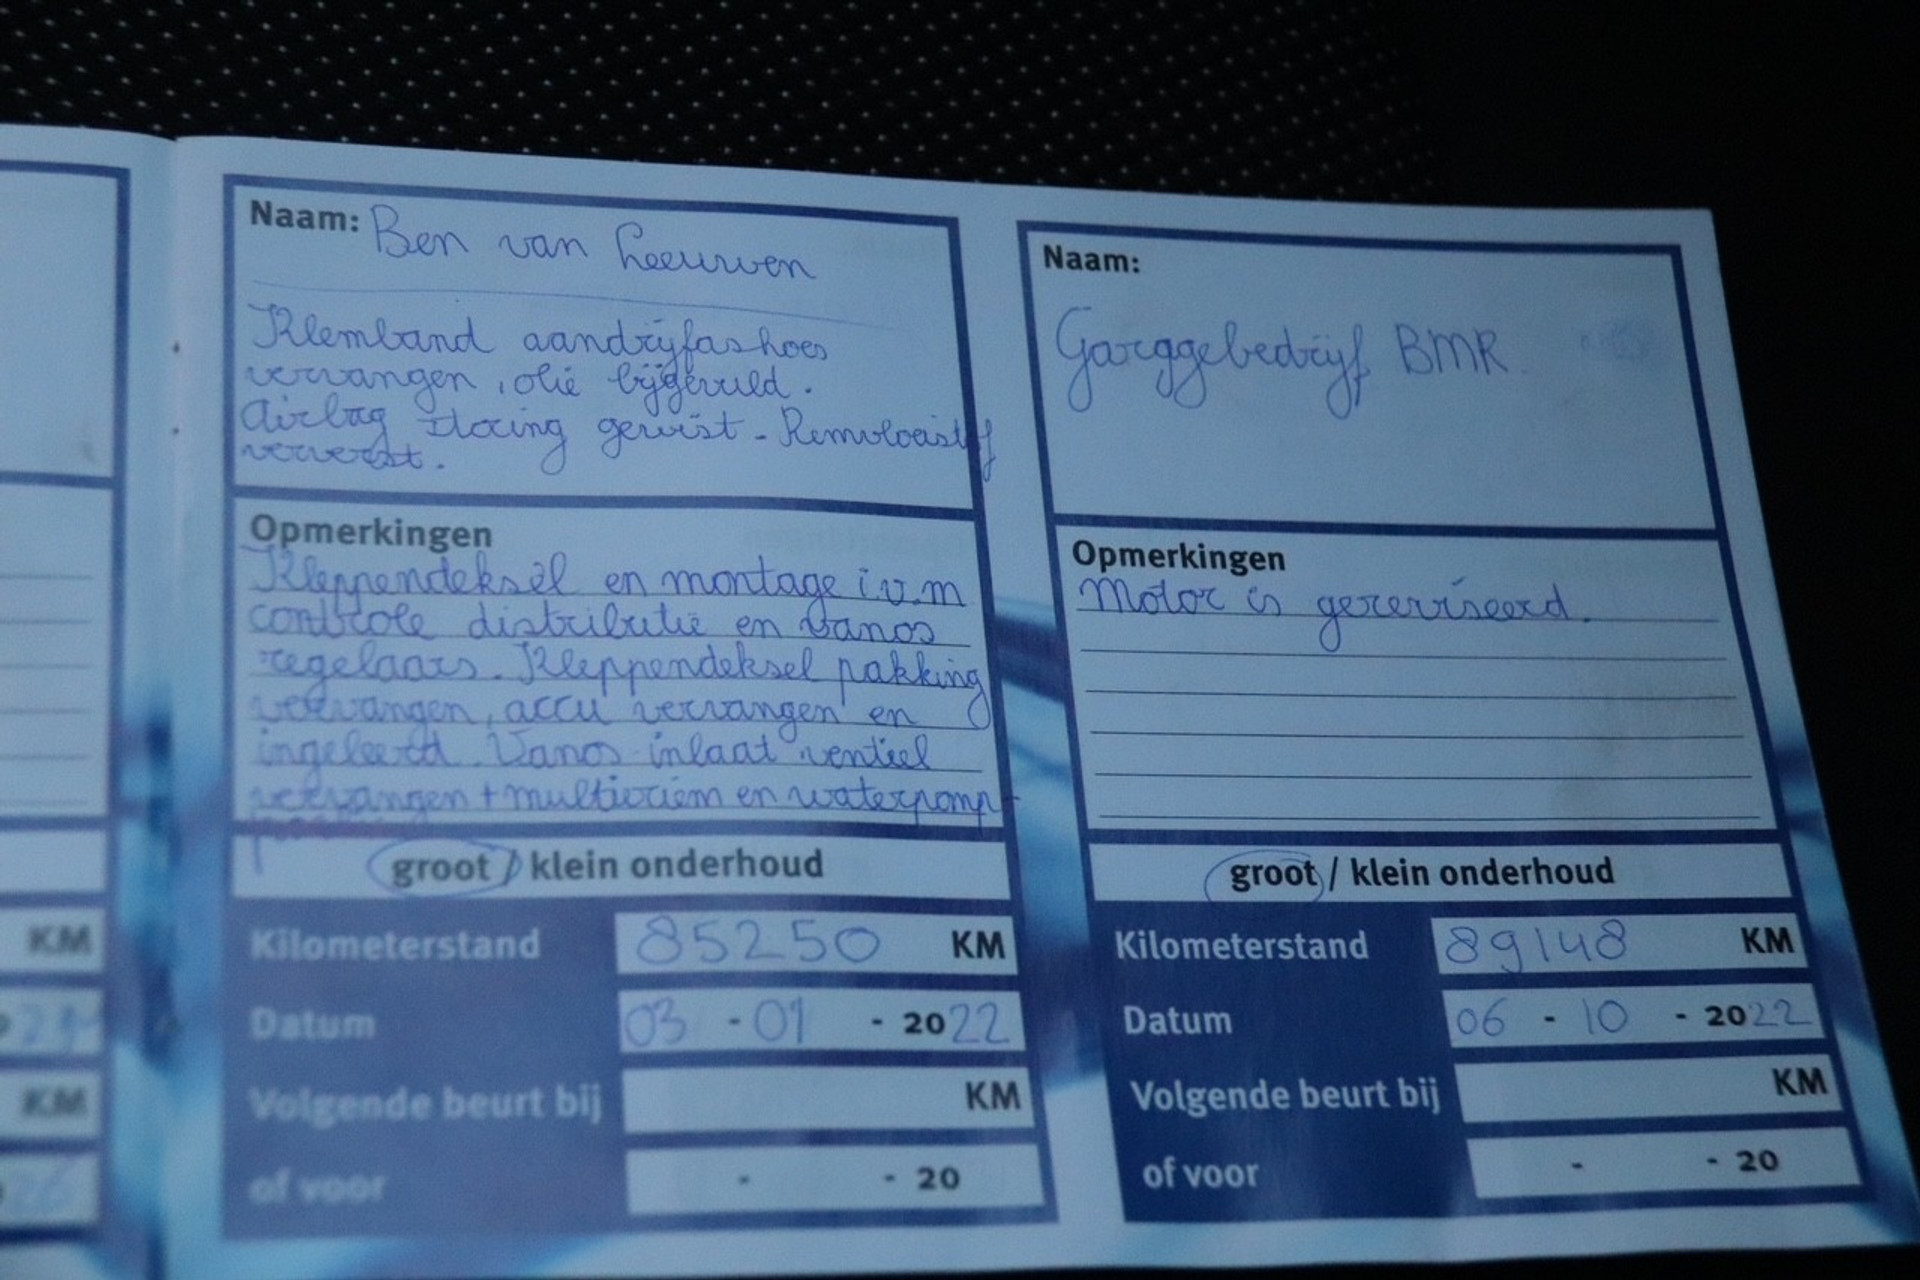 Naam: Ben van Leeuwen
Klemband aandrijfashoes
vervangen, olie bijgevuld.
Airbag storing gewist - Remvloeistof
ververst.
Opmerkingen
Kleppendeksel en montage i.v.m
controle distributie en vanos
regelaars. Kleppendeksel pakking
vervangen, accu vervangen en
ingeleerd. Vanos inlaat ventiel
vervangen + multiriem en waterpomp-
groot / klein onderhoud
Kilometerstand 85250 KM
Datum 03 - 01 - 2022
Volgende beurt bij KM
of voor - - 20
Naam:
Garaggebedrijf BMR
Opmerkingen
Motor is gereviseerd.
groot / klein onderhoud
Kilometerstand 89148 KM
Datum 06 - 10 - 2022
Volgende beurt bij KM
of voor - - 20
KM
KM